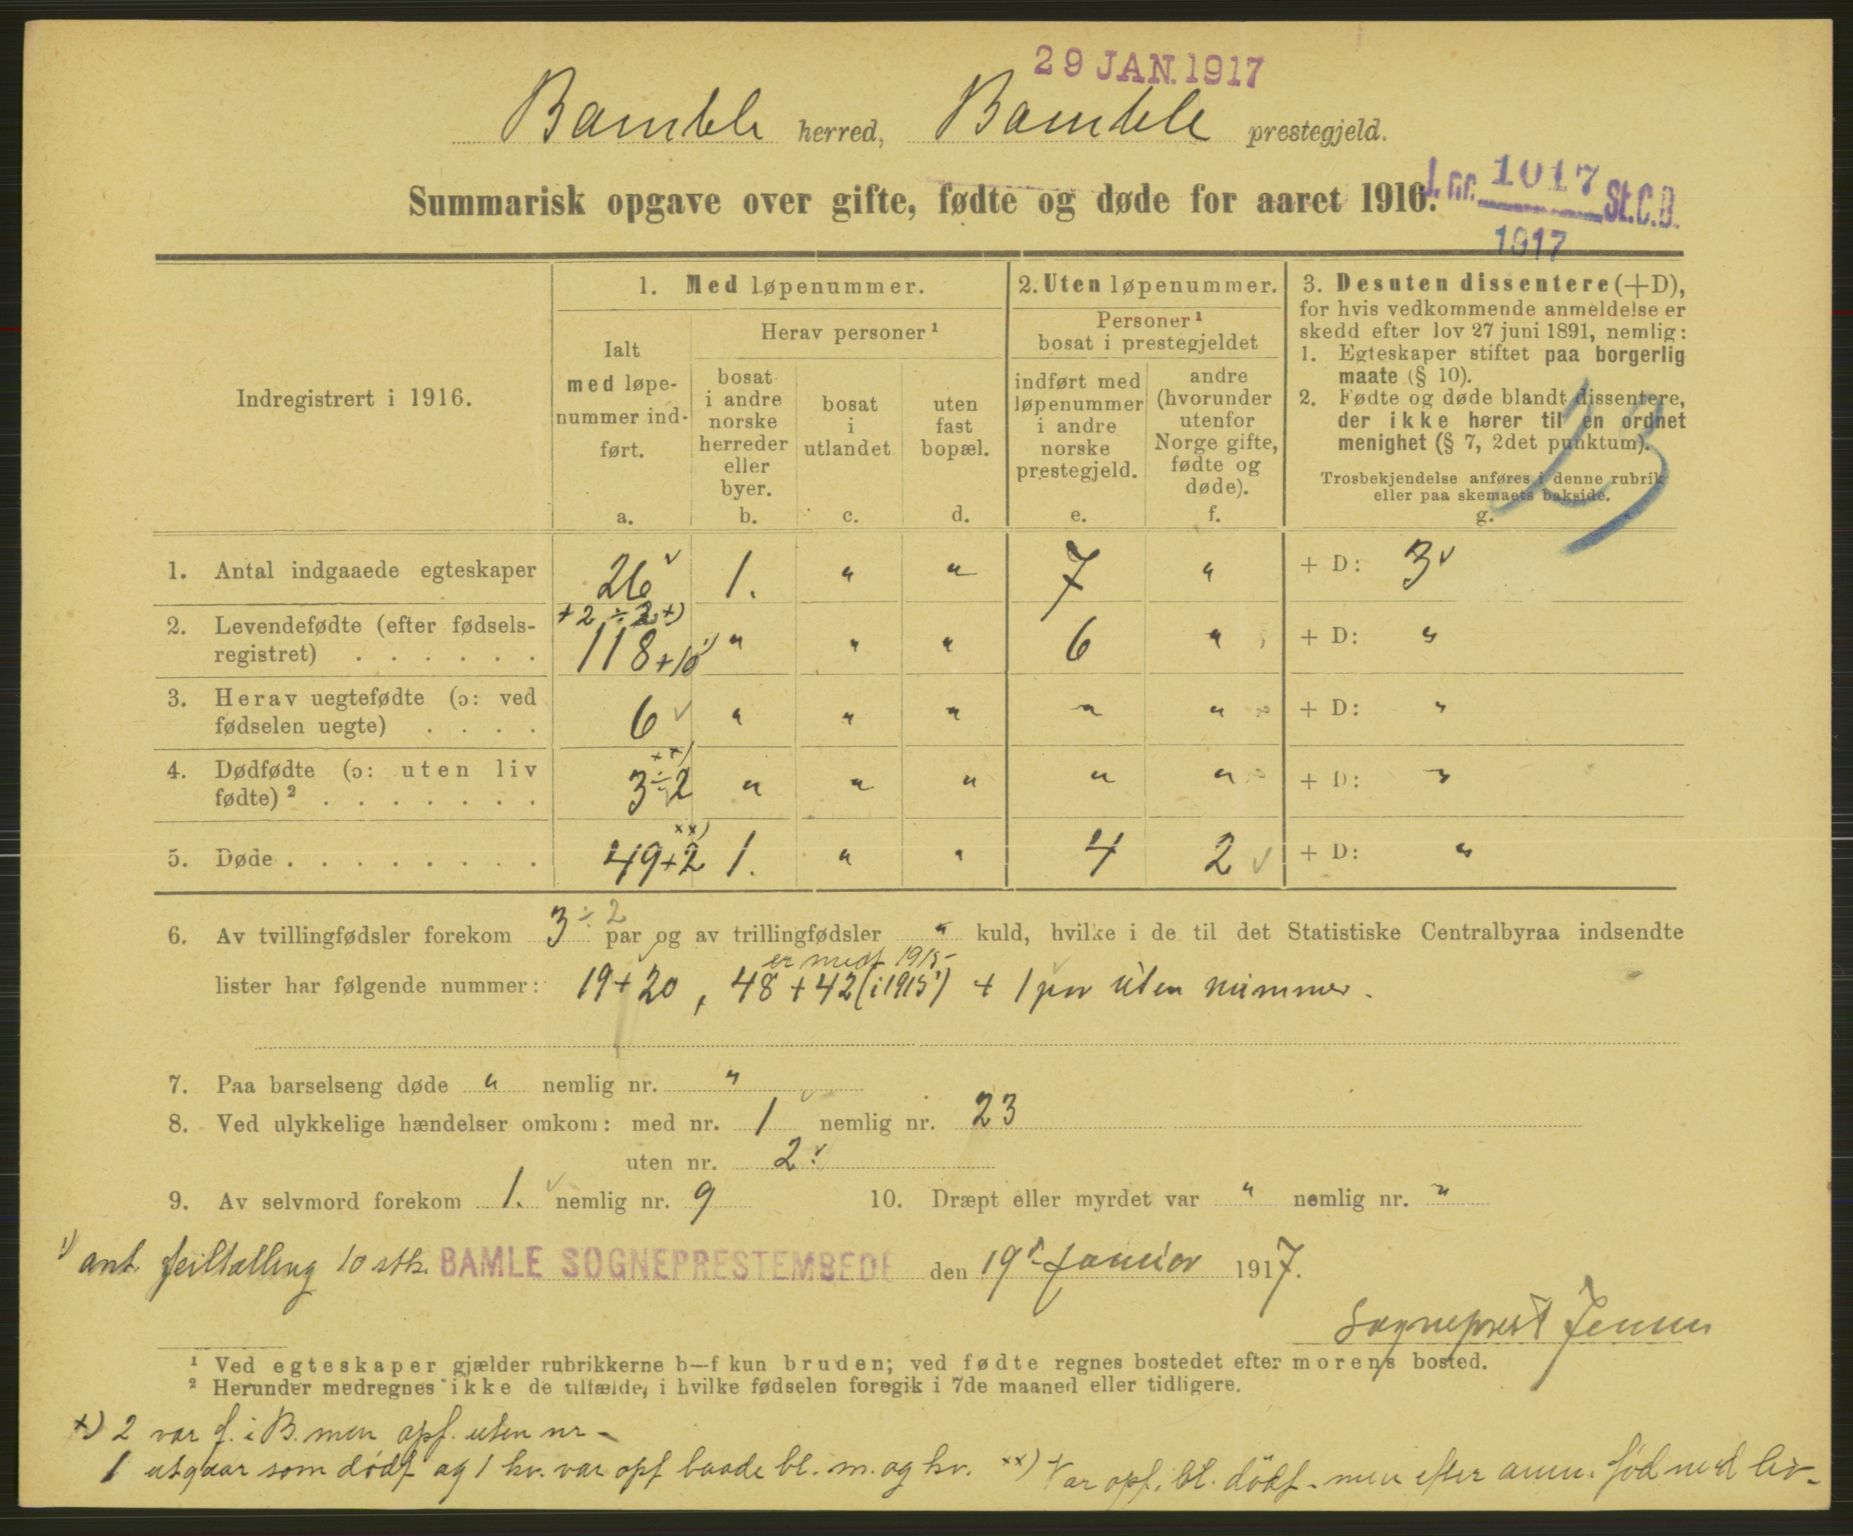 29 JAN. 1917
Bamble herred, Bamble prestegjeld.
J. nr. 1017 St.C.B.
1917
Summarisk opgave over gifte, fødte og døde for aaret 1916.
Indregistrert i 1916.
1. Med løpenummer.
Ialt
med løpe-
nummer ind-
ført.
a.
Herav personer ¹
bosat
i andre
norske
herreder
eller
byer.
b.
bosat
i
utlandet
c.
uten
fast
bopæl.
d.
2. Uten løpenummer.
Personer ¹
bosat i prestegjeldet
indført med
løpenummer
i andre
norske
prestegjeld.
e.
andre
(hvorunder
utenfor
Norge gifte,
fødte og
døde).
f.
3. Desuten dissentere (+D),
for hvis vedkommende anmeldelse er
skedd efter lov 27 juni 1891, nemlig:
1. Egteskaper stiftet paa borgerlig
maate (§ 10).
2. Fødte og døde blandt dissentere,
der ikke hører til en ordnet
menighet (§ 7, 2det punktum).
Trosbekjendelse anføres i denne rubrik
eller paa skemaets bakside.
g.
23
1. Antal indgaaede egteskaper 26 1. " " 7 " + D: 3
+2 ÷ 2 x)
2. Levendefødte (efter fødsels-
registret) . . . . . . 118 + 10 ¹) " " " 6 " + D: "
3. Herav uegtefødte (ɔ: ved
fødselen uegte) . . . . 6 " " " " " + D: "
4. Dødfødte (ɔ: uten liv
fødte) ² . . . . . . . 3 ÷ 2 xx) " " " " " + D: "
5. Døde . . . . . . . . . 49 + 2 xx) 1. " " 4 2 + D: "
6. Av tvillingfødsler forekom 3 ÷ 2 par og av trillingfødsler " kuld, hvilke i de til det Statistiske Centralbyraa indsendte
er medt 1915
lister har følgende nummer: 19+20, 48+42 (i 1915) + 1 par uten nummer.
7. Paa barselseng døde " nemlig nr. "
8. Ved ulykkelige hændelser omkom: med nr. 1 nemlig nr. 23
uten nr. 2.
9. Av selvmord forekom 1. nemlig nr. 9 10. Dræpt eller myrdet var " nemlig nr. "
¹) ant. feiltælling 10 stk. BAMLE SOGNEPRESTEMBEDE den 19 januar 1917.
Sogneprest Jensen
¹ Ved egteskaper gjælder rubrikkerne b—f kun bruden; ved fødte regnes bostedet efter morens bosted.
² Herunder medregnes ikke de tilfælde, i hvilke fødselen foregik i 7de maaned eller tidligere.
x) 2 var f. i B. men opf. uten nr.
1 utgaar som dødf og 1 kv. var opf baade bl. m. og kv. xx) Var opf. bl. dödf. men efter anm. fød med liv.